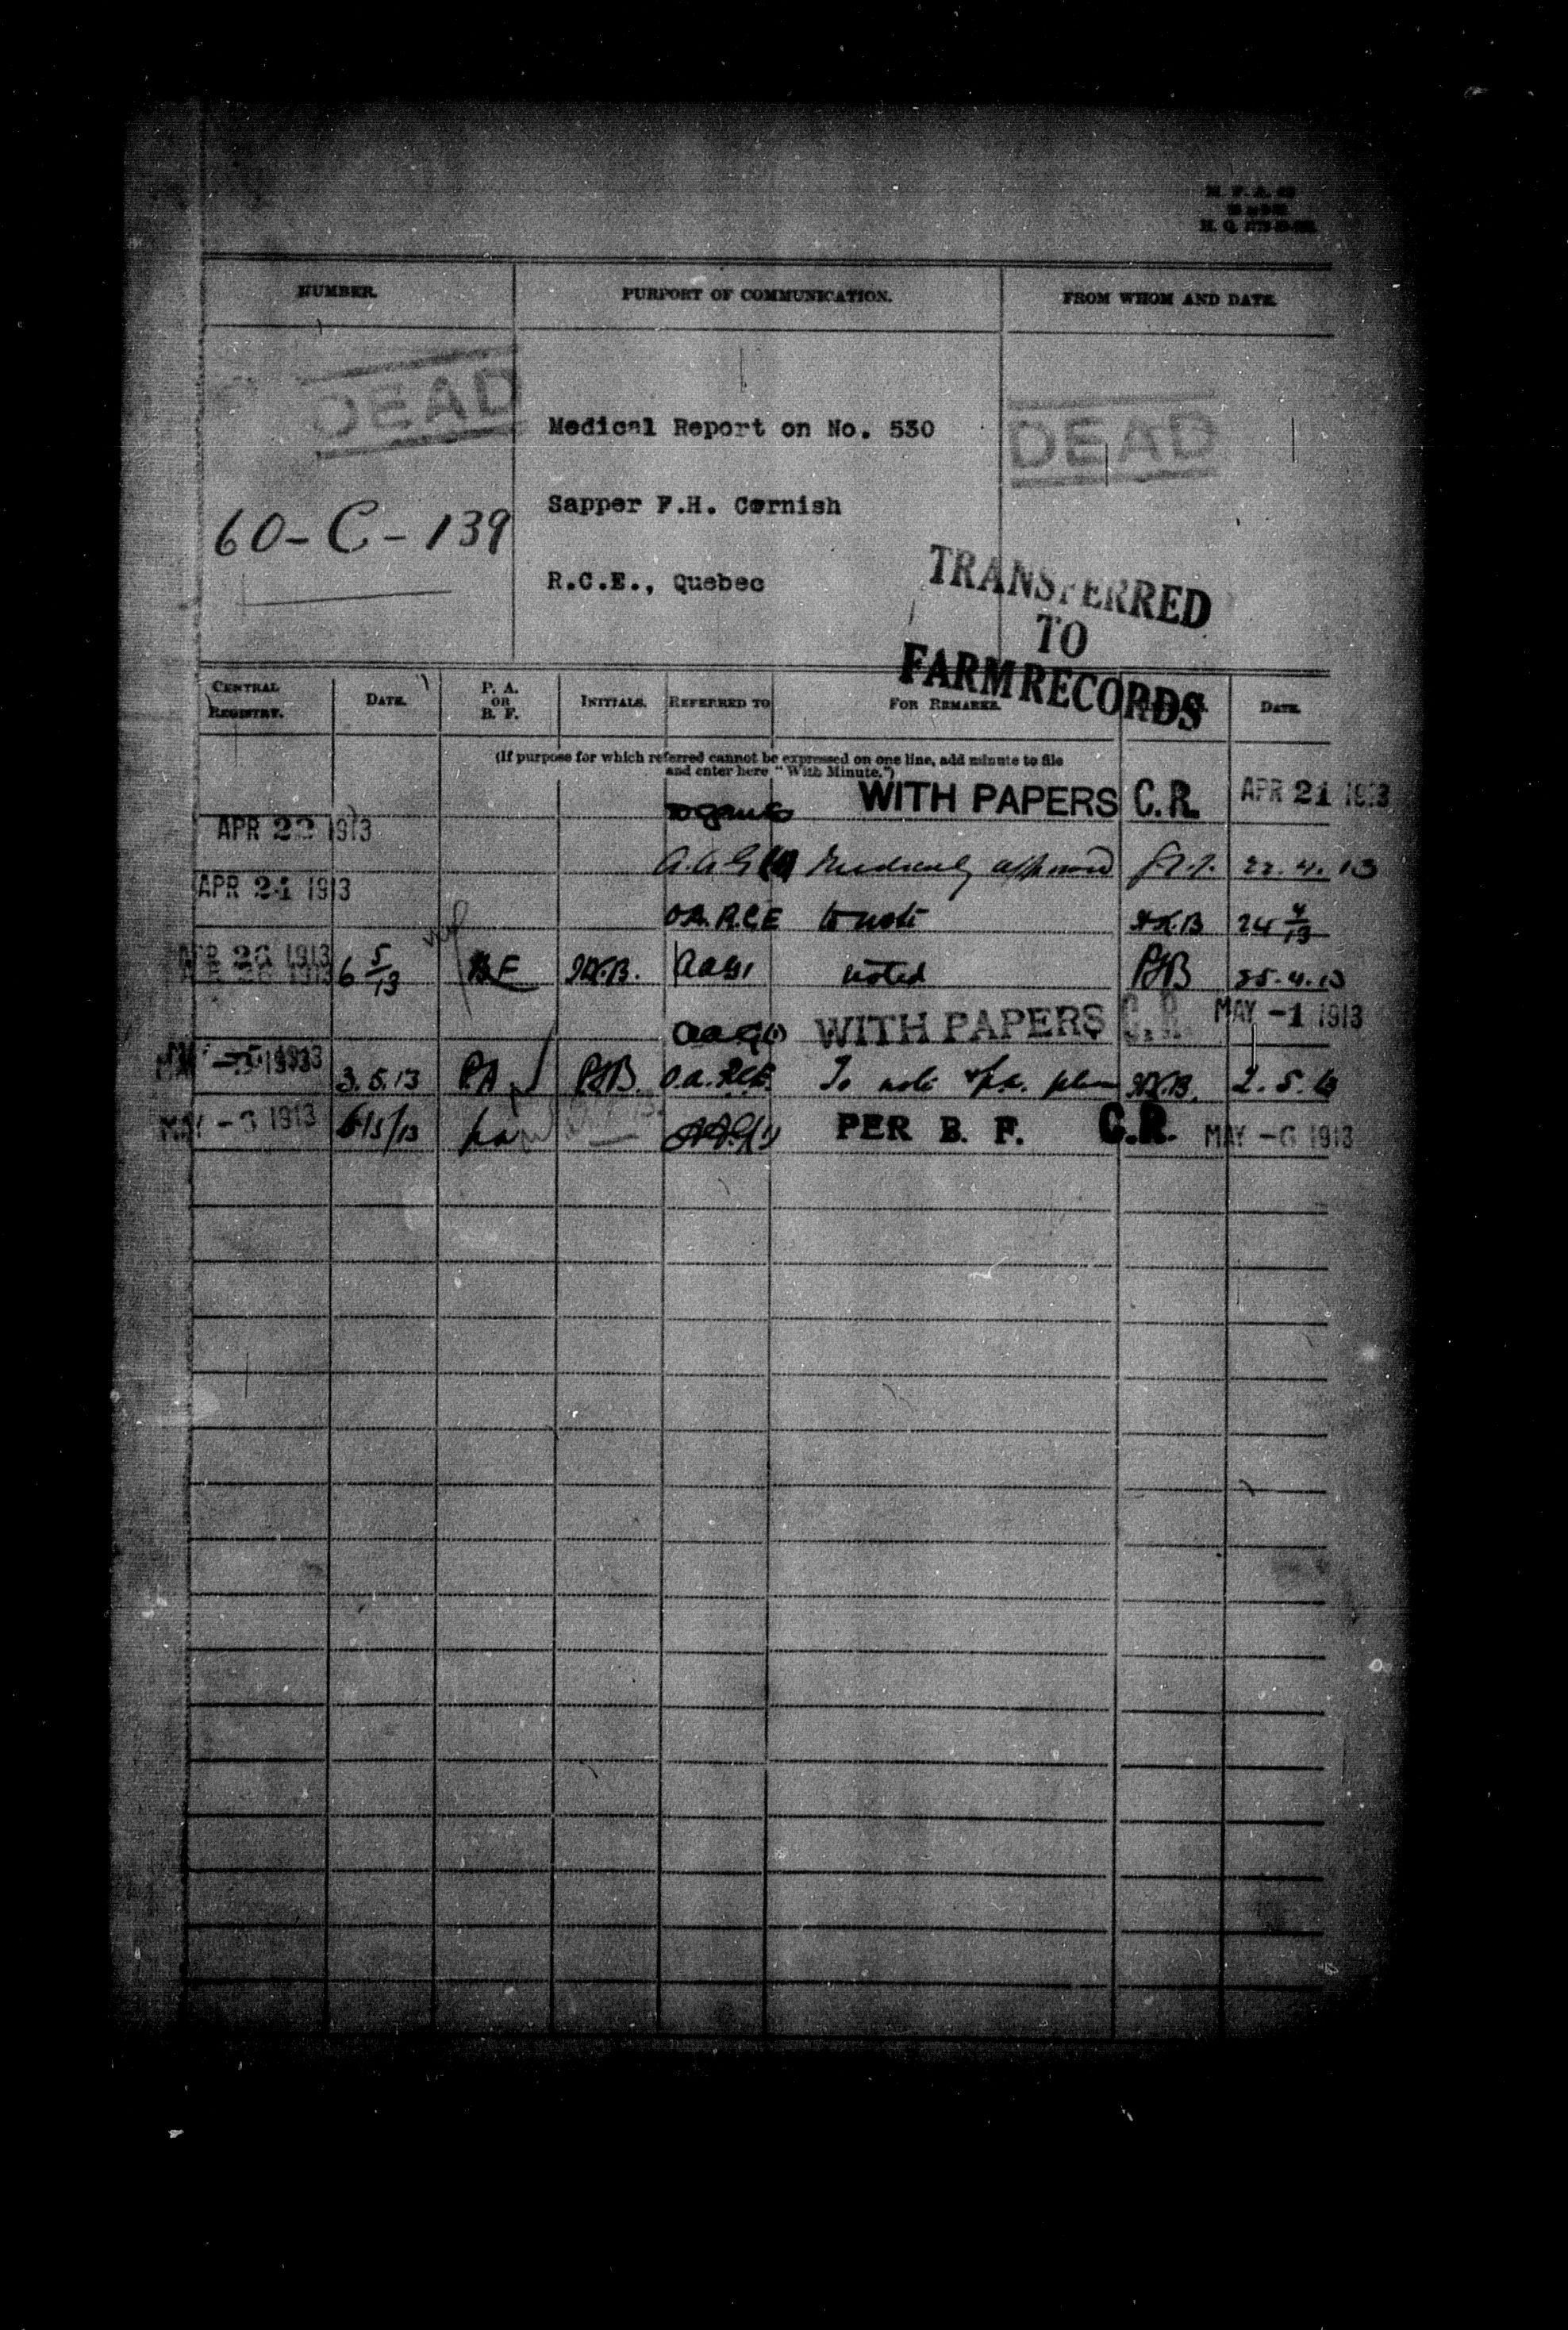 M. F. A.
H. Q.
NUMBER. PURPORT OF COMMUNICATION. FROM WHOM AND DATE.
DEAD
DEAD
Medical Report on No. 530
Sapper F.H. Cornish
60-C-139
R.C.E., Quebec
TRANSFERRED
TO
FARM RECORDS
CENTRAL REGISTRY. DATE. P. A. OR B. F. INITIALS. REFERRED TO FOR REMARKS. DATE.
(If purpose for which referred cannot be expressed on one line, add minute to file
and enter here "With Minute.")
WITH PAPERS C.R. APR 21 1913
APR 22 1913
A.A.G. Medically approved 22.4.13
APR 24 1913
D.A.R.C.E to note 24 4/13
APR 26 1913 6 5/13 B.F. noted 25.4.13
WITH PAPERS C.R. MAY -1 1913
3.5.13 P.A. To note 2.5.13
MAY -6 1913 6/5/13 pa PER B. F. C.R. MAY -6 1913